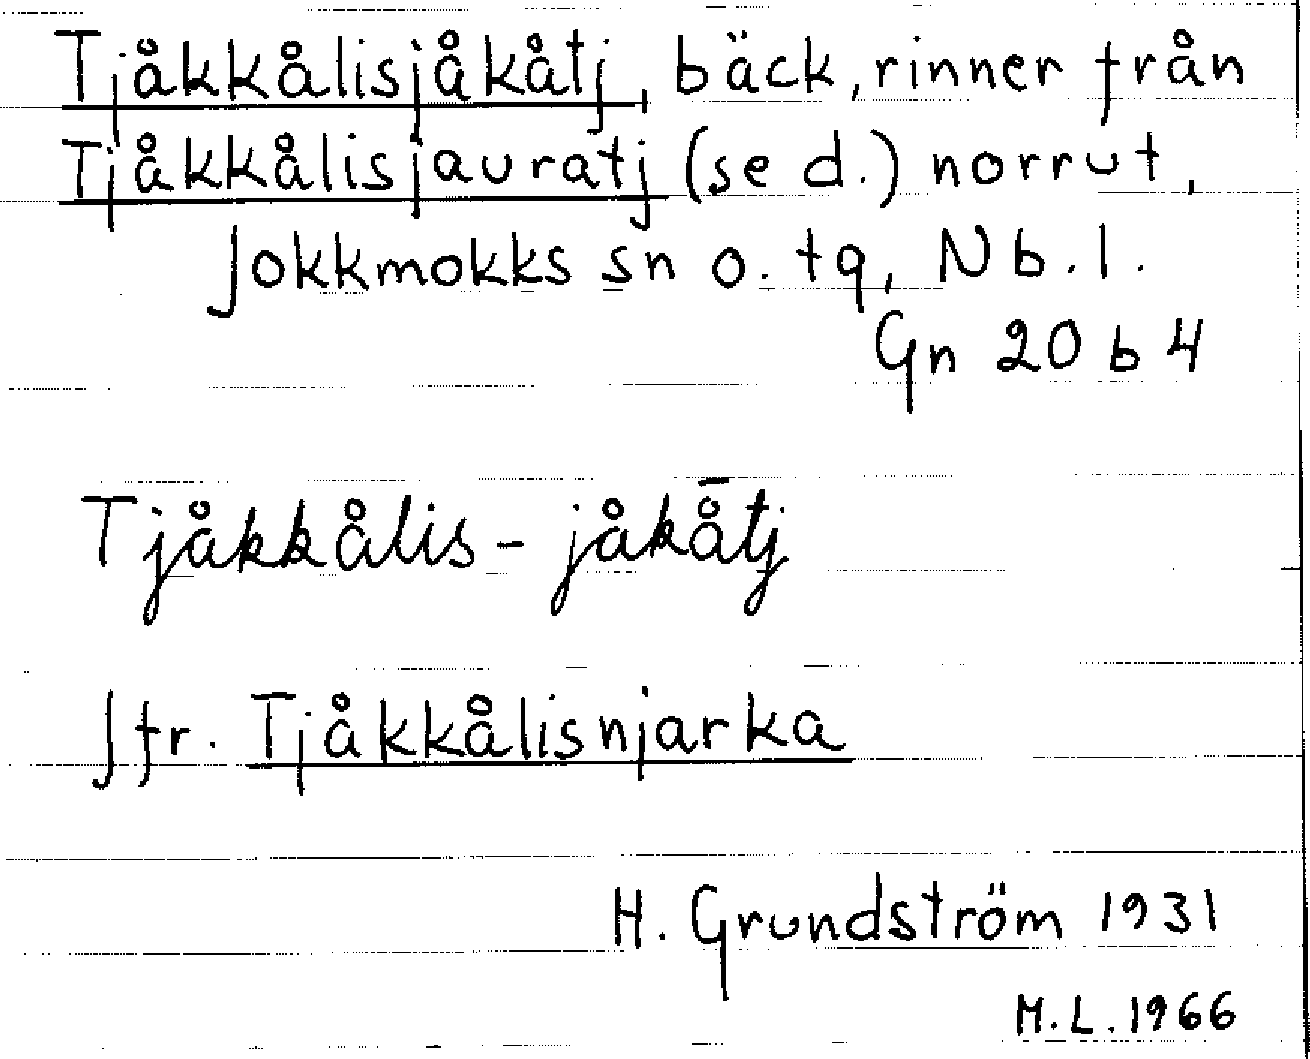 Tjåkkålisjåkåtj, bäck, rinner från
Tjåkkålisjauratj (se d.) norrut,
Jokkmokks sn o. tg, Nb. l.
Gn 20 b 4
Tjåkkålis-jåkå̄tj
Jfr. Tjåkkålisnjarka
H. Grundström 1931
M.L. 1966